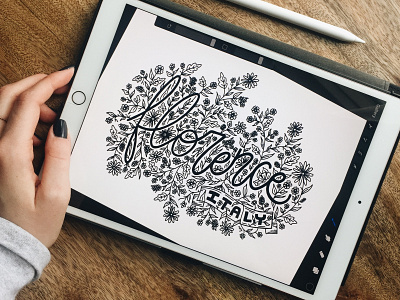 florence
ITALY.